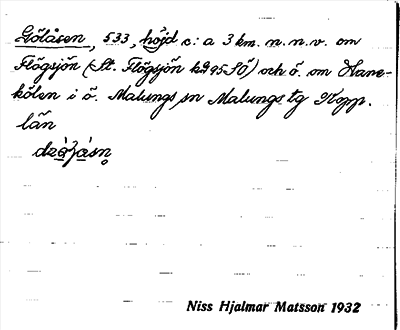 Gölåsen, 533, höjd c:a 3 km. n.n.v. om
Flögsjön (St. Flögsjön k895Sö) och ö. om Hane-
kölen i ö. Malungs sn Malungs tg Kopp.
län
Niss Hjalmar Matsson 1932